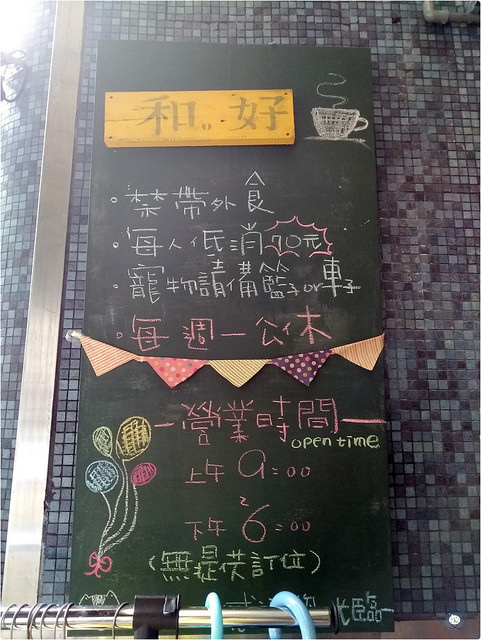 和。好
·禁帶外食
·每人低消70元
·寵物請備籃子or車子
·每週一公休
-營業時間-
open time
上午 9:00
下午 6:00
(無提供訂位)
光臨